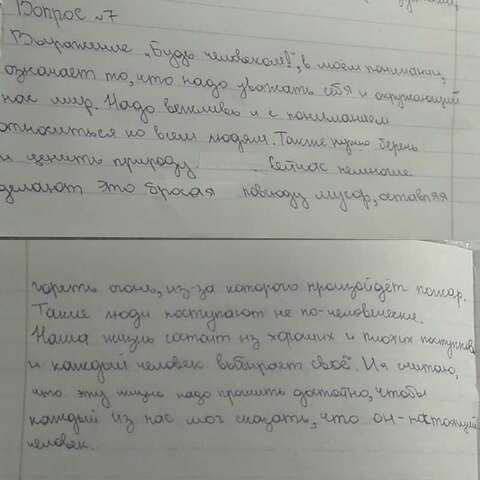 Вопрос №7
Выражение „Будь человеком!", в моём понимании,
означает то, что надо уважать себя и окружающий
нас мир. Надо вежливо и с пониманием
относиться ко всем людям. Также нужно беречь
и ценить природу. Сейчас немногие
делают это бросая повсюду мусор, оставляя
гореть огонь, из-за которого произойдёт пожар.
Такие люди поступают не по-человечески.
Наша жизнь состоит из хороших и плохих поступков
и каждый человек выбирает своё. И я считаю,
что эту жизнь надо прожить достойно, чтобы
каждый из нас мог сказать, что он - настоящий
человек.